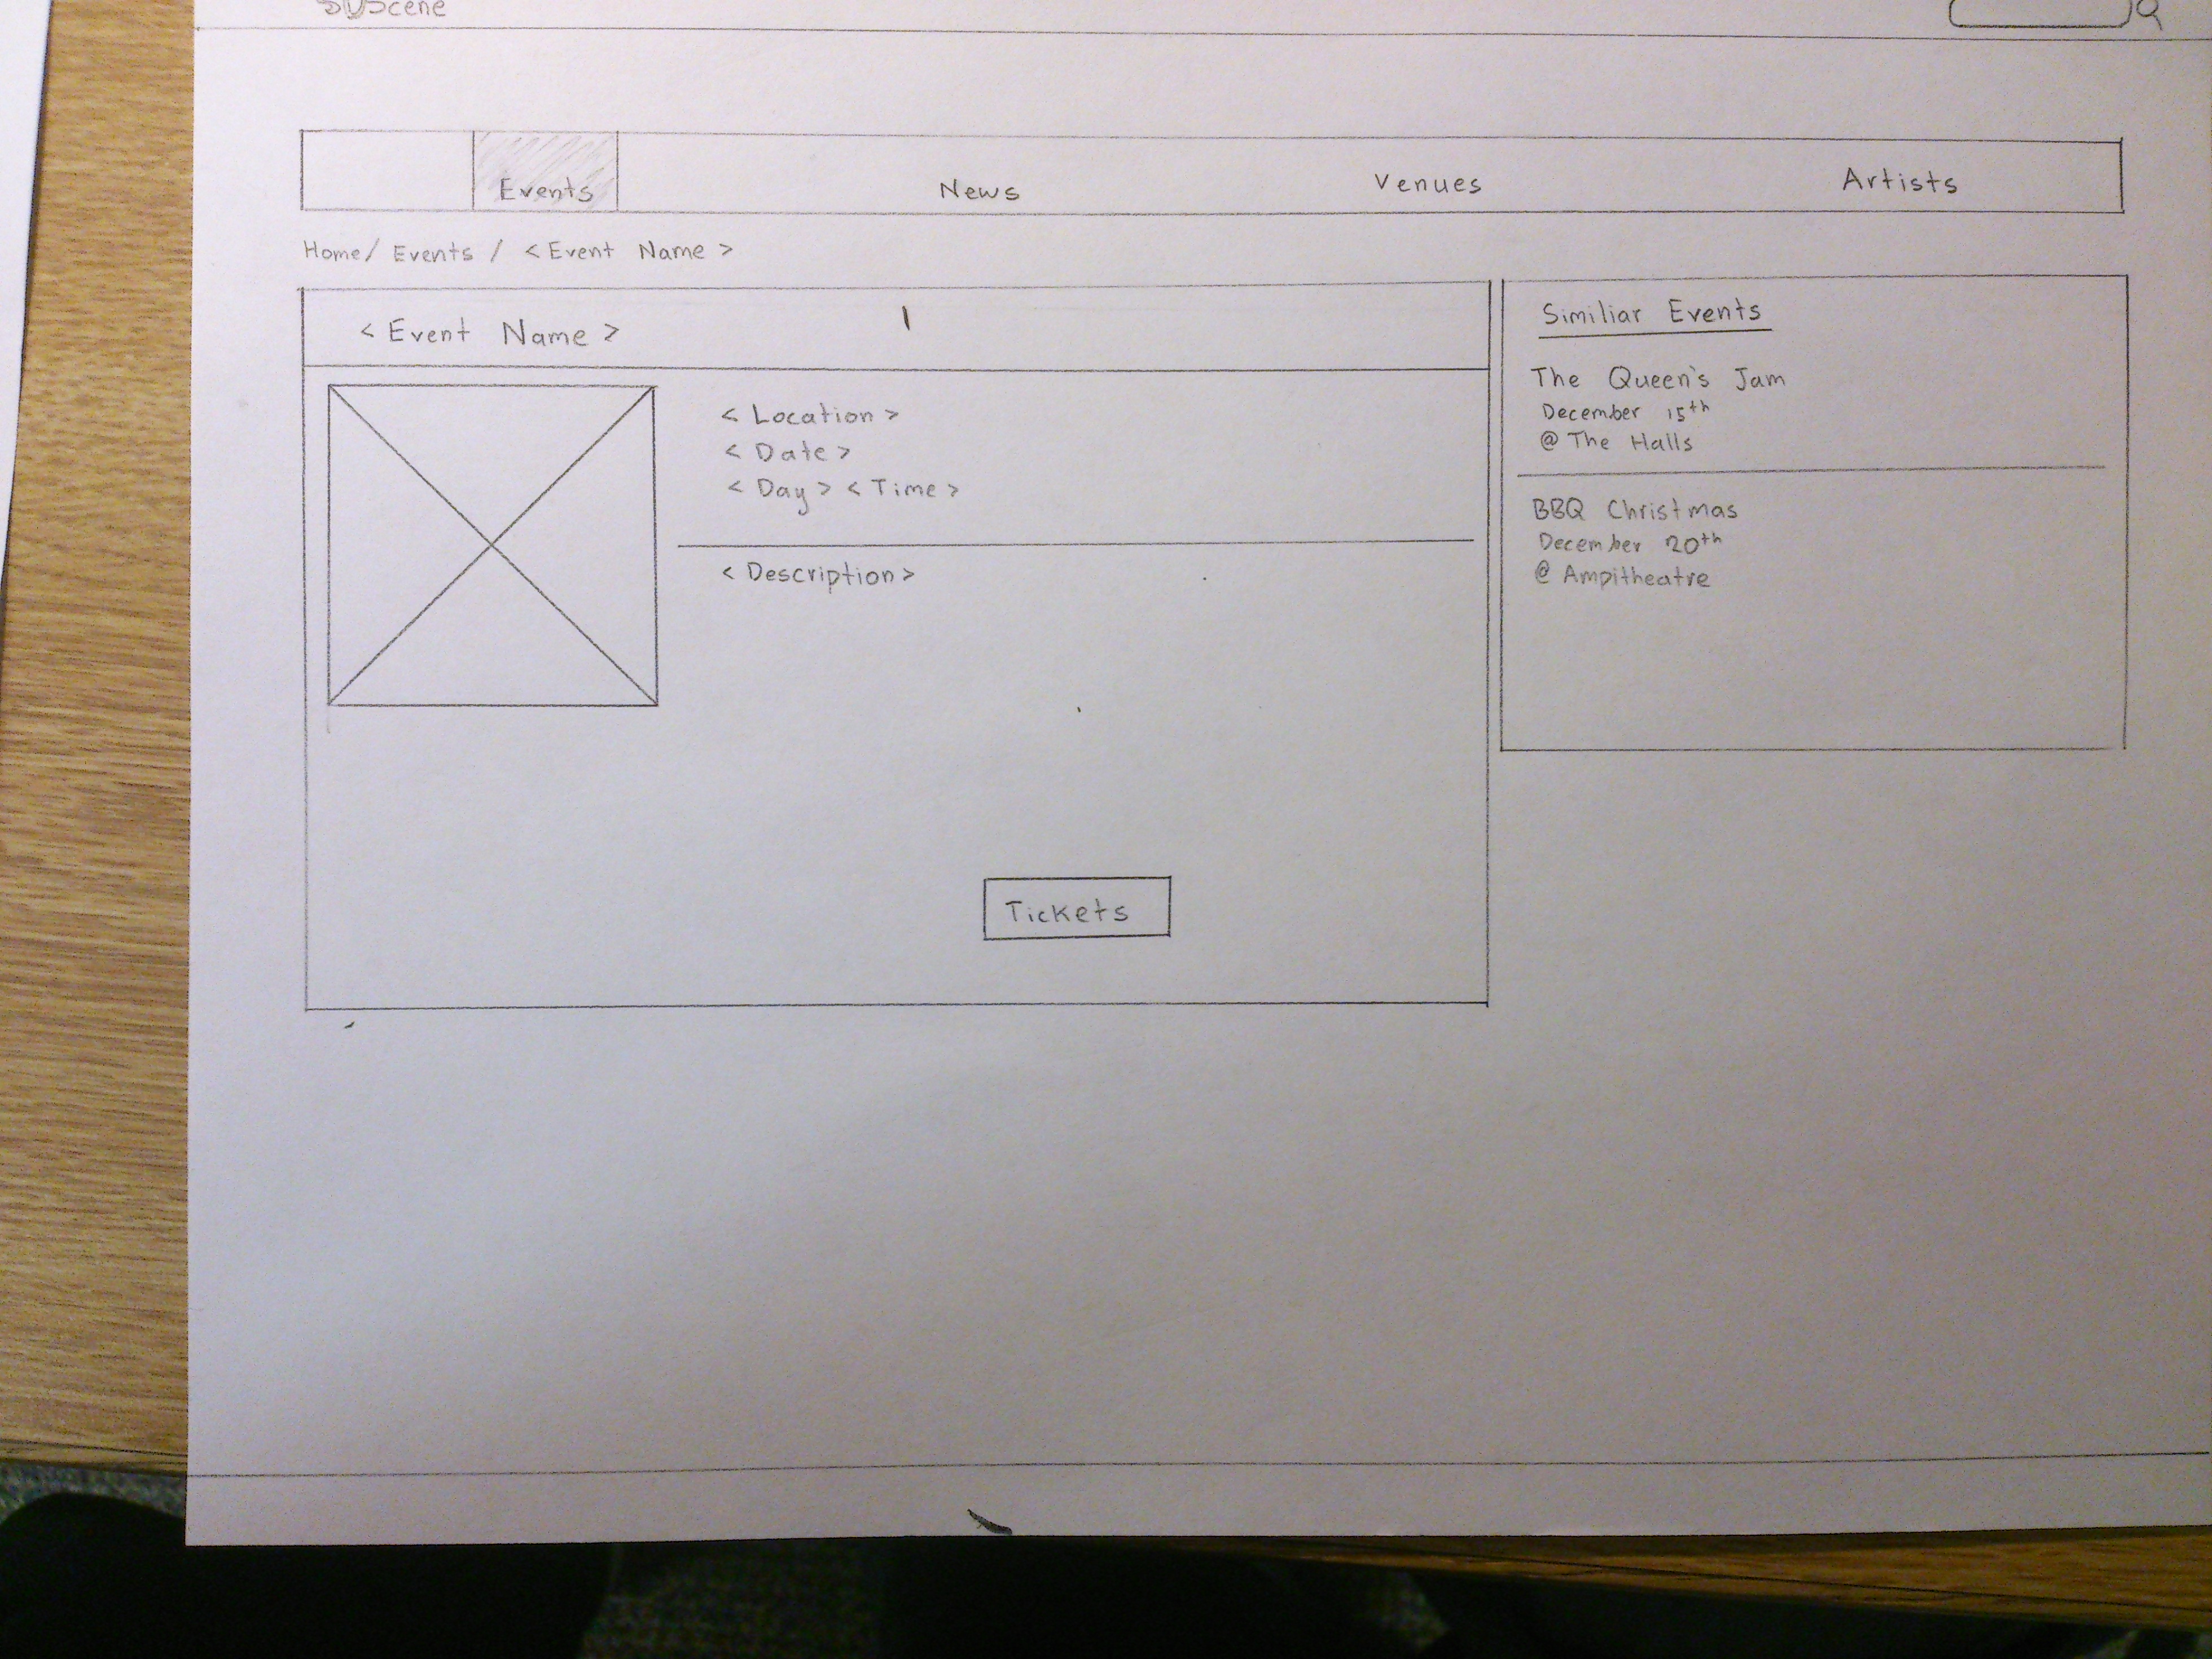 Events
News
Venues
Artists
Home / Events / < Event Name >
< Event Name >
< Location >
< Date >
< Day > < Time >
< Description >
Tickets
Similiar Events
The Queen's Jam
December 15th
@ The Halls
BBQ Christmas
December 20th
@ Ampitheatre